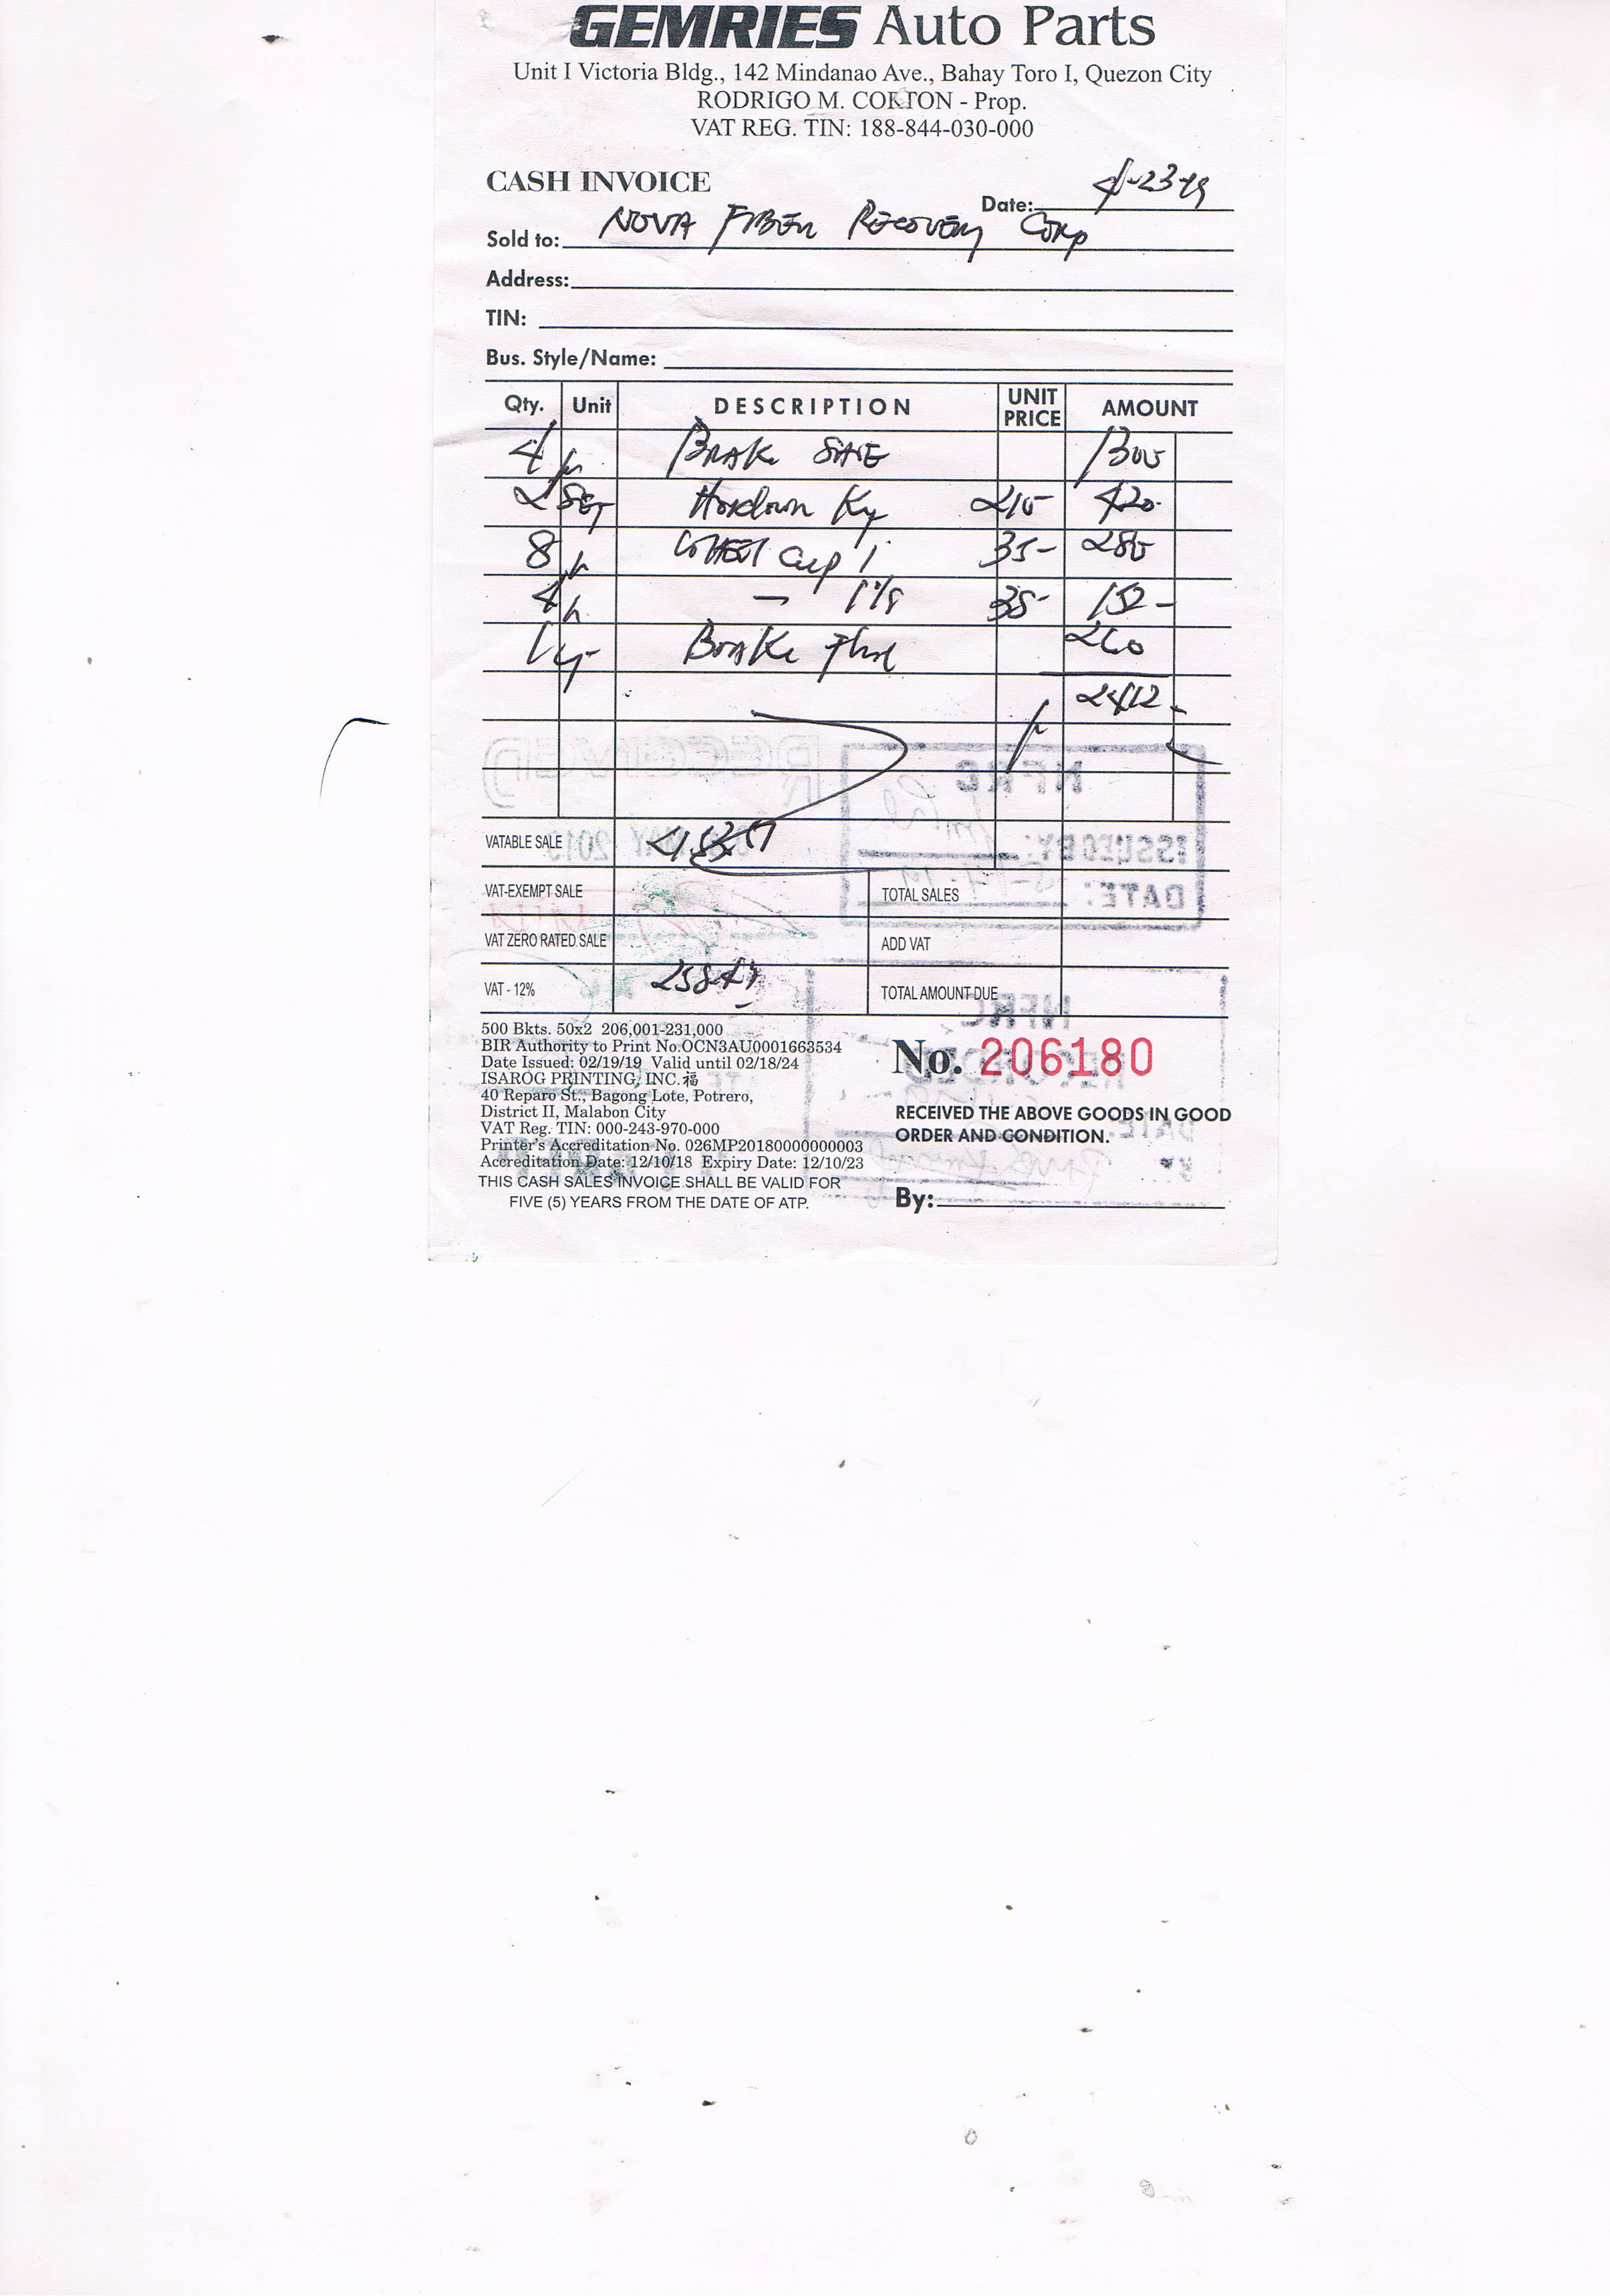 GEMRIES Auto Parts
Unit I Victoria Bldg., 142 Mindanao Ave., Bahay Toro I, Quezon City
RODRIGO M. COKTON - Prop.
VAT REG. TIN: 188-844-030-000
CASH INVOICE
Date: 4-23-19
Sold to: NOVA FIBER RECOVERY CORP
Address:
TIN:
Bus. Style/Name:
Qty. Unit DESCRIPTION UNIT PRICE AMOUNT
4 BRAKE 1300
2 SET 210 420
8 Cup 1 35- 280
4 — 1 1/8 38- 152-
1 BRAKE Fluid 260
2412-
VATABLE SALE
VAT-EXEMPT SALE TOTAL SALES
VAT ZERO RATED SALE ADD VAT
VAT - 12% 258.43 TOTAL AMOUNT DUE
500 Bkts. 50x2 206,001-231,000
BIR Authority to Print No.OCN3AU0001663534
Date Issued: 02/19/19 Valid until 02/18/24
ISAROG PRINTING, INC.福
40 Reparo St., Bagong Lote, Potrero,
District II, Malabon City
VAT Reg. TIN: 000-243-970-000
Printer's Accreditation No. 026MP20180000000003
Accreditation Date: 12/10/18 Expiry Date: 12/10/23
THIS CASH SALES INVOICE SHALL BE VALID FOR
FIVE (5) YEARS FROM THE DATE OF ATP.
No. 206180
RECEIVED THE ABOVE GOODS IN GOOD
ORDER AND CONDITION.
By:
RECEIVED
MAY 2019
NFRC
ISSUED BY:
DATE:
NFRC
DATE